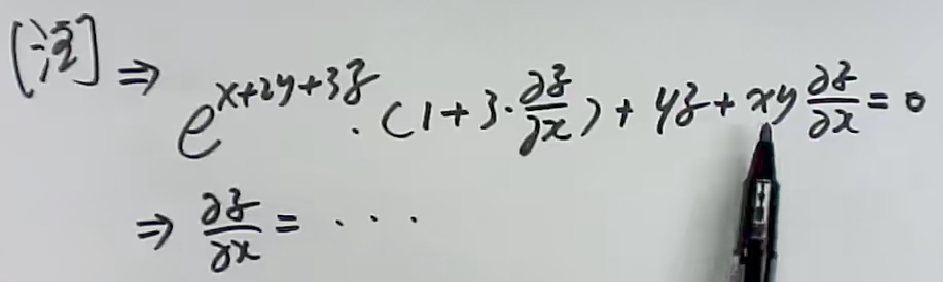 [法] ⇒ e^{x+2y+3z} · (1+3·∂z/∂x) + yz + xy ∂z/∂x = 0
⇒ ∂z/∂x = · · ·